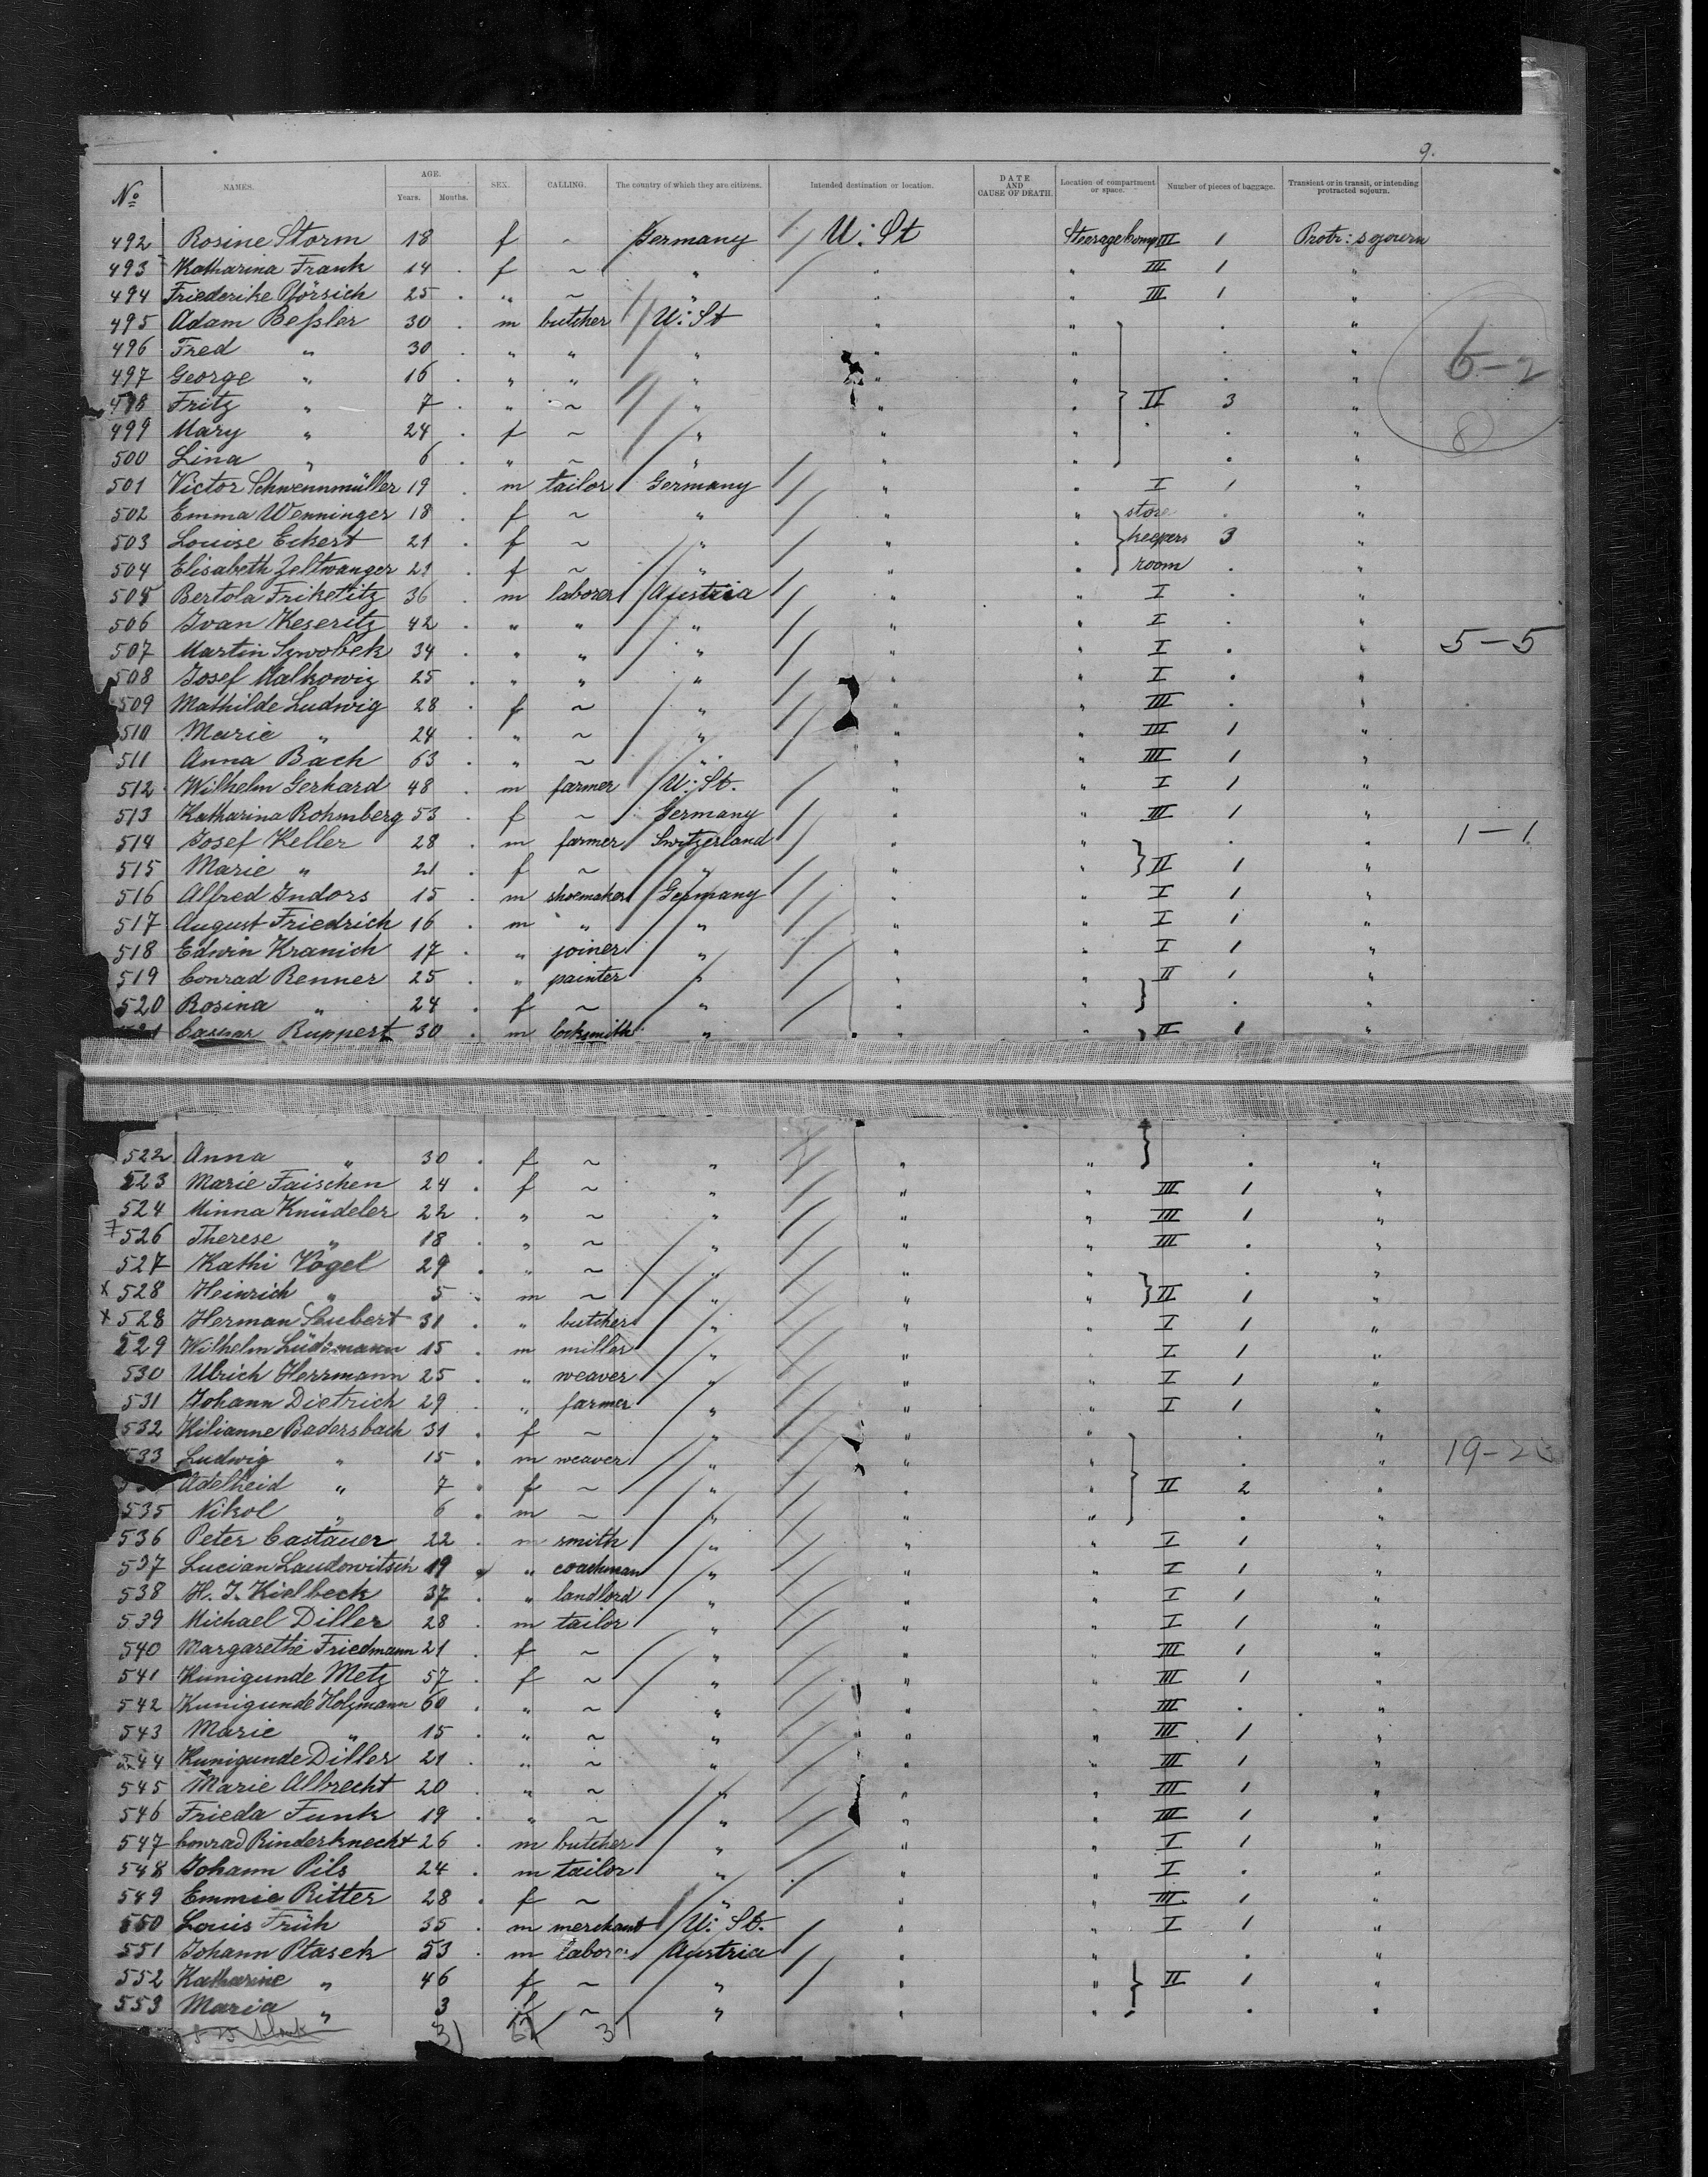 9.
No NAMES. AGE. Years. Months. SEX. CALLING. The country of which they are citizens. Intended destination or location. DATE AND CAUSE OF DEATH. Location of compartment or space. Number of pieces of baggage. Transient or in transit, or intending protracted sojourn.
492 Rosine Storm 18 f - Germany U: St Steerage Comp III 1 Protr: sojourn
493 Katharina Frank 14 f ~ " " " III 1 "
494 Friederike Pförsich 25 " ~ " " " III 1 "
495 Adam Beßler 30 m butcher U: St " " "
496 Fred " 30 " " " " " "
497 George " 16 " " " " " " 6-2
498 Fritz " 7 " ~ " " " II 3 "
499 Mary " 24 f ~ " " " " 8
500 Lina " 6 " ~ " " " "
501 Victor Schwennmüller 19 m tailor Germany " " I 1 "
502 Emma Wenninger 18 f ~ " " " store "
503 Louise Eckert 21 f ~ " " " keepers 3 "
504 Elisabeth Zeltwanger 21 f ~ " " " room "
505 Bertola Friketitz 36 m laborer Austria " " I "
506 Ivan Keseritz 42 " " " " " I "
507 Martin Szwobek 34 " " " " " I " 5-5
508 Josef Malkowig 25 " " " " " I "
509 Mathilde Ludwig 28 f ~ " " " III "
510 Marie " 24 " ~ " " " III 1 "
511 Anna Bach 63 " ~ " " " III 1 "
512 Wilhelm Gerhard 48 m farmer U: St. " " I 1 "
513 Katharina Rohmberg 53 f ~ Germany " " III 1 "
514 Josef Keller 28 m farmer Switzerland " " " 1-1
515 Marie " 21 f ~ " " " II 1 "
516 Alfred Indors 15 m shoemaker Germany " " I 1 "
517 August Friedrich 16 m " " " " I 1 "
518 Edwin Kranich 17 " joiner " " " I 1 "
519 Conrad Renner 25 " painter " " " II 1 "
520 Rosina " 24 f ~ " " " "
521 Caspar Ruppert 30 m locksmith " " " II 1 "
522 Anna " 30 f ~ " " " "
523 Marie Faischen 24 f ~ " " " III 1 "
524 Minna Knüdeler 22 " ~ " " " III 1 "
526 Therese " 18 " ~ " " " III "
527 Kathi Vogel 29 " ~ " " " "
x 528 Heinrich " 5 m ~ " " " II 1 "
x 528 Herman Seubert 31 " butcher " " " I 1 "
529 Wilhelm Lüdemann 15 m miller " " " I 1 "
530 Ulrich Herrmann 25 " weaver " " " I 1 "
531 Johann Dietrich 29 " farmer " " " I 1 "
532 Kilianne Badersbach 31 f ~ " " " "
533 Ludwig " 15 m weaver " " " "
Adelheid " 7 f ~ " " " II 2 "
535 Nikol " 6 m ~ " " " "
536 Peter Castauer 22 m smith " " " I 1 "
537 Lucian Laudowitsch 19 " coachman " " " I 1 "
538 H. J. Kielbeck 37 " landlord " " " I 1 "
539 Michael Diller 28 m tailor " " " I 1 "
540 Margarethe Friedmann 21 f ~ " " " III 1 "
541 Kunigunde Metz 57 f ~ " " " III 1 "
542 Kunigunde Holzmann 60 " ~ " " " III "
543 Marie " 15 " ~ " " " III 1 "
544 Kunigunde Diller 21 " ~ " " " III 1 "
545 Marie Albrecht 20 " ~ " " " III 1 "
546 Frieda Funk 19 " ~ " " " III 1 "
547 Conrad Rinderknecht 26 m butcher " " " I 1 "
548 Johann Pils 24 m tailor " " " I "
549 Emmie Ritter 28 f ~ " " " III 1 "
550 Louis Früh 35 m merchant U: St. " " I 1 "
551 Johann Ptasek 53 m laborer Austria " " "
552 Katharine " 46 f ~ " " " II 1 "
553 Maria " 3 f ~ " " " "
31 31